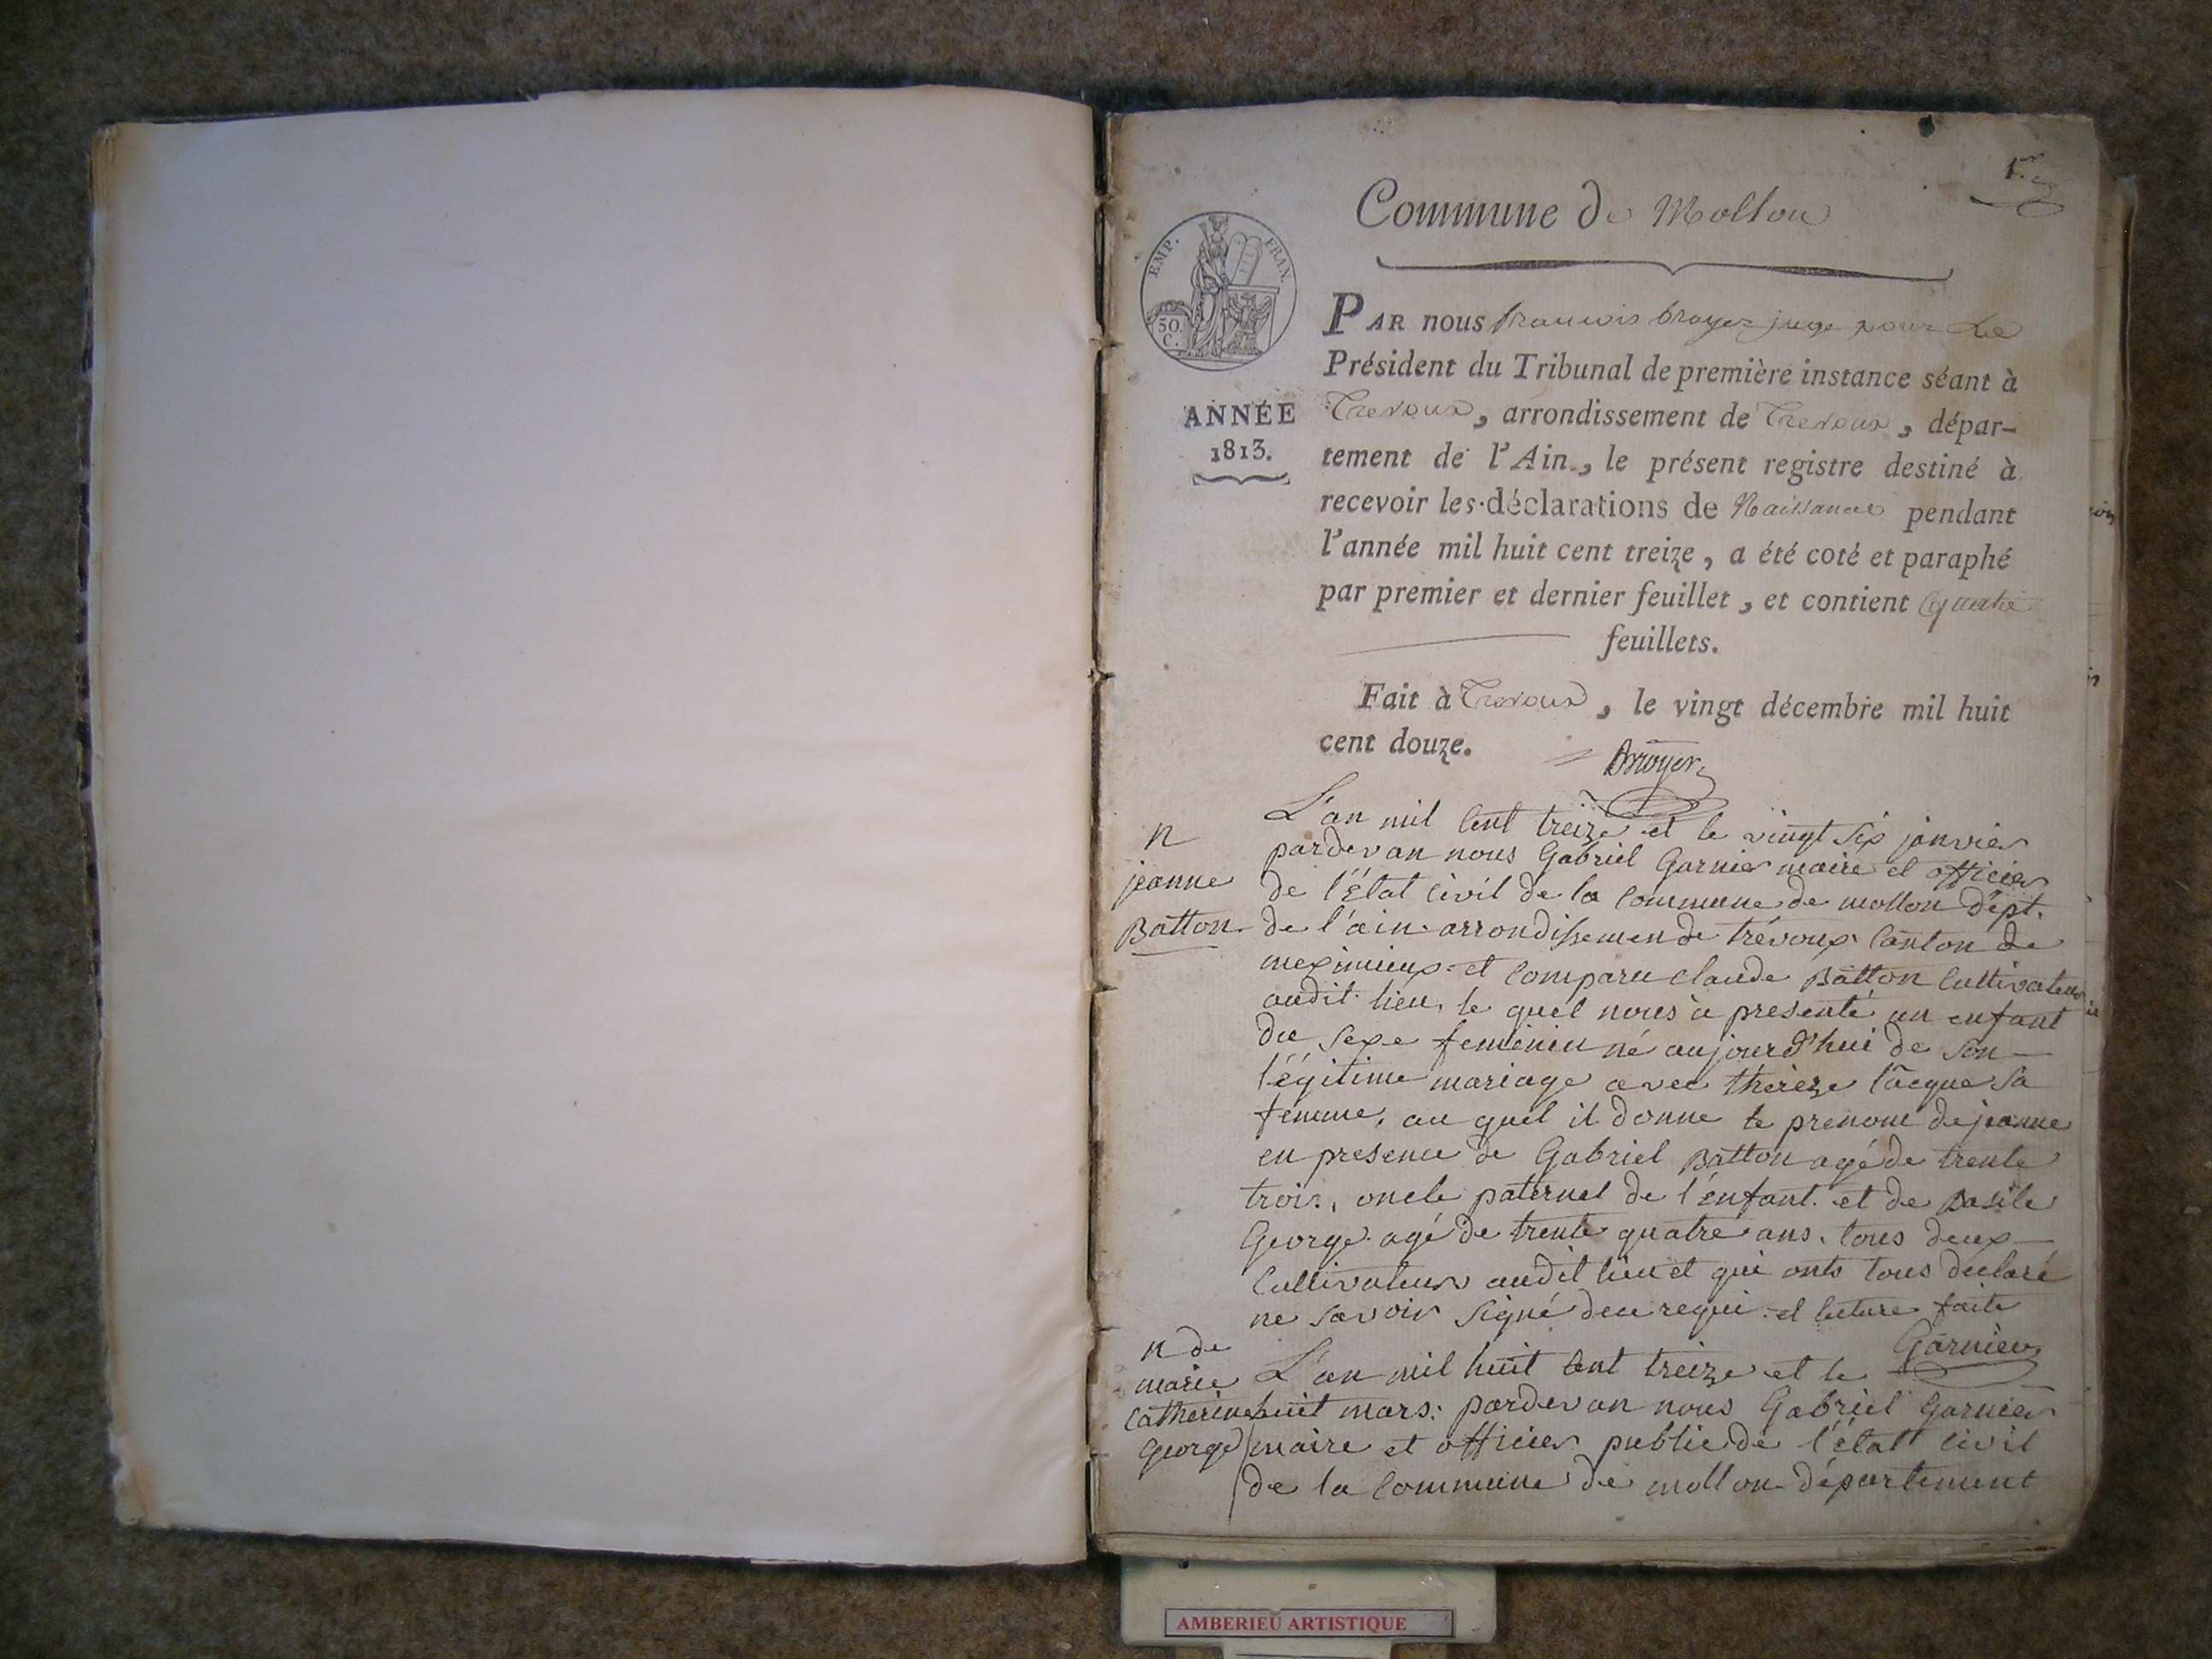 1.er
Commune de Mollon
EMP. FRAN.
50. C.
ANNÉE
1813.
PAR nous francois broyer juge pour Le
Président du Tribunal de première instance séant à
Trevoux, arrondissement de Trevoux, dépar-
tement de l'Ain, le présent registre destiné à
recevoir les déclarations de Naissance pendant
l'année mil huit cent treize, a été coté et paraphé
par premier et dernier feuillet, et contient quatre
feuillets.
Fait à Trevoux, le vingt décembre mil huit
cent douze.
Broyer
n
jeanne
Batton
L'an mil cent treize et le vingt six janvier
pardevan nous Gabriel Garnier maire et officier
de l'état civil de la commune de mollon dépt.
de l'ain arrondissemen de trévoux canton de
meximieux et comparu claude Batton cultivateur
audit lieu, le quel nous à presenté un enfant
du sexe feminin né aujourd'hui de son
légitime mariage avec thérèze lacque sa
femme, au quel il donne le prenom de jeanne
en presence de Gabriel Batton agé de trente
trois, oncle paternel de l'énfant et de Basile
George agé de trente quatre ans. tous deux
cultivateurs audit lieu et qui onts tous declaré
ne savoir signé deu requi et lecture faite
Garnier
n de
marie
catherine
George
L'an mil huit cent treize et le
huit mars: pardevan nous Gabriel Garnier
maire et officier public de l'état civil
de la commune de mollon département
AMBERIEU ARTISTIQUE